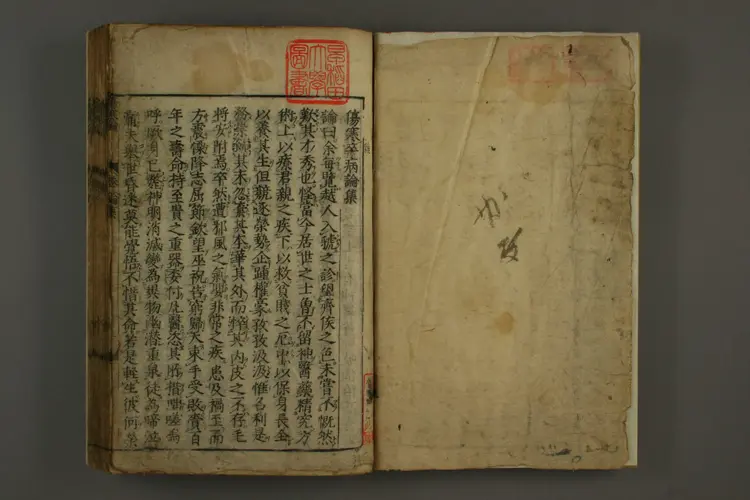 傷寒卒病論集
論曰余每覽越人入虢之診望齊侯之色未嘗不慨然
歎其才秀也怪當今居世之士曾不留神醫藥精究方
術上以療君親之疾下以救貧賤之厄中以保身長全
以養其生但競逐榮勢企踵權豪孜孜汲汲惟名利是
務崇飾其末忽棄其本華其外而悴其內皮之不存毛
將安附焉卒然遭邪風之氣嬰非常之疾患及禍至而
方震慄降志屈節欽望巫祝告窮歸天束手受敗賫百
年之壽命持至貴之重器委付凡醫恣其所措咄嗟嗚
呼厥身已斃神明消滅變為異物幽潛重泉徒為啼泣
痛夫舉世昏迷莫能覺悟不惜其命若是輕生彼何榮
早稲田
大學
圖書